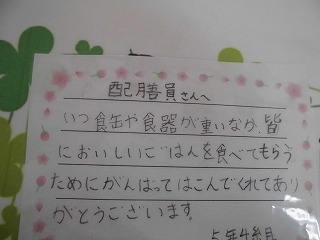 配膳員さんへ
いつ食缶や食器が重いなか、皆
においしいごはんを食べてもらう
ためにがんばってはこんでくれてあり
がとうございます。
5年4組